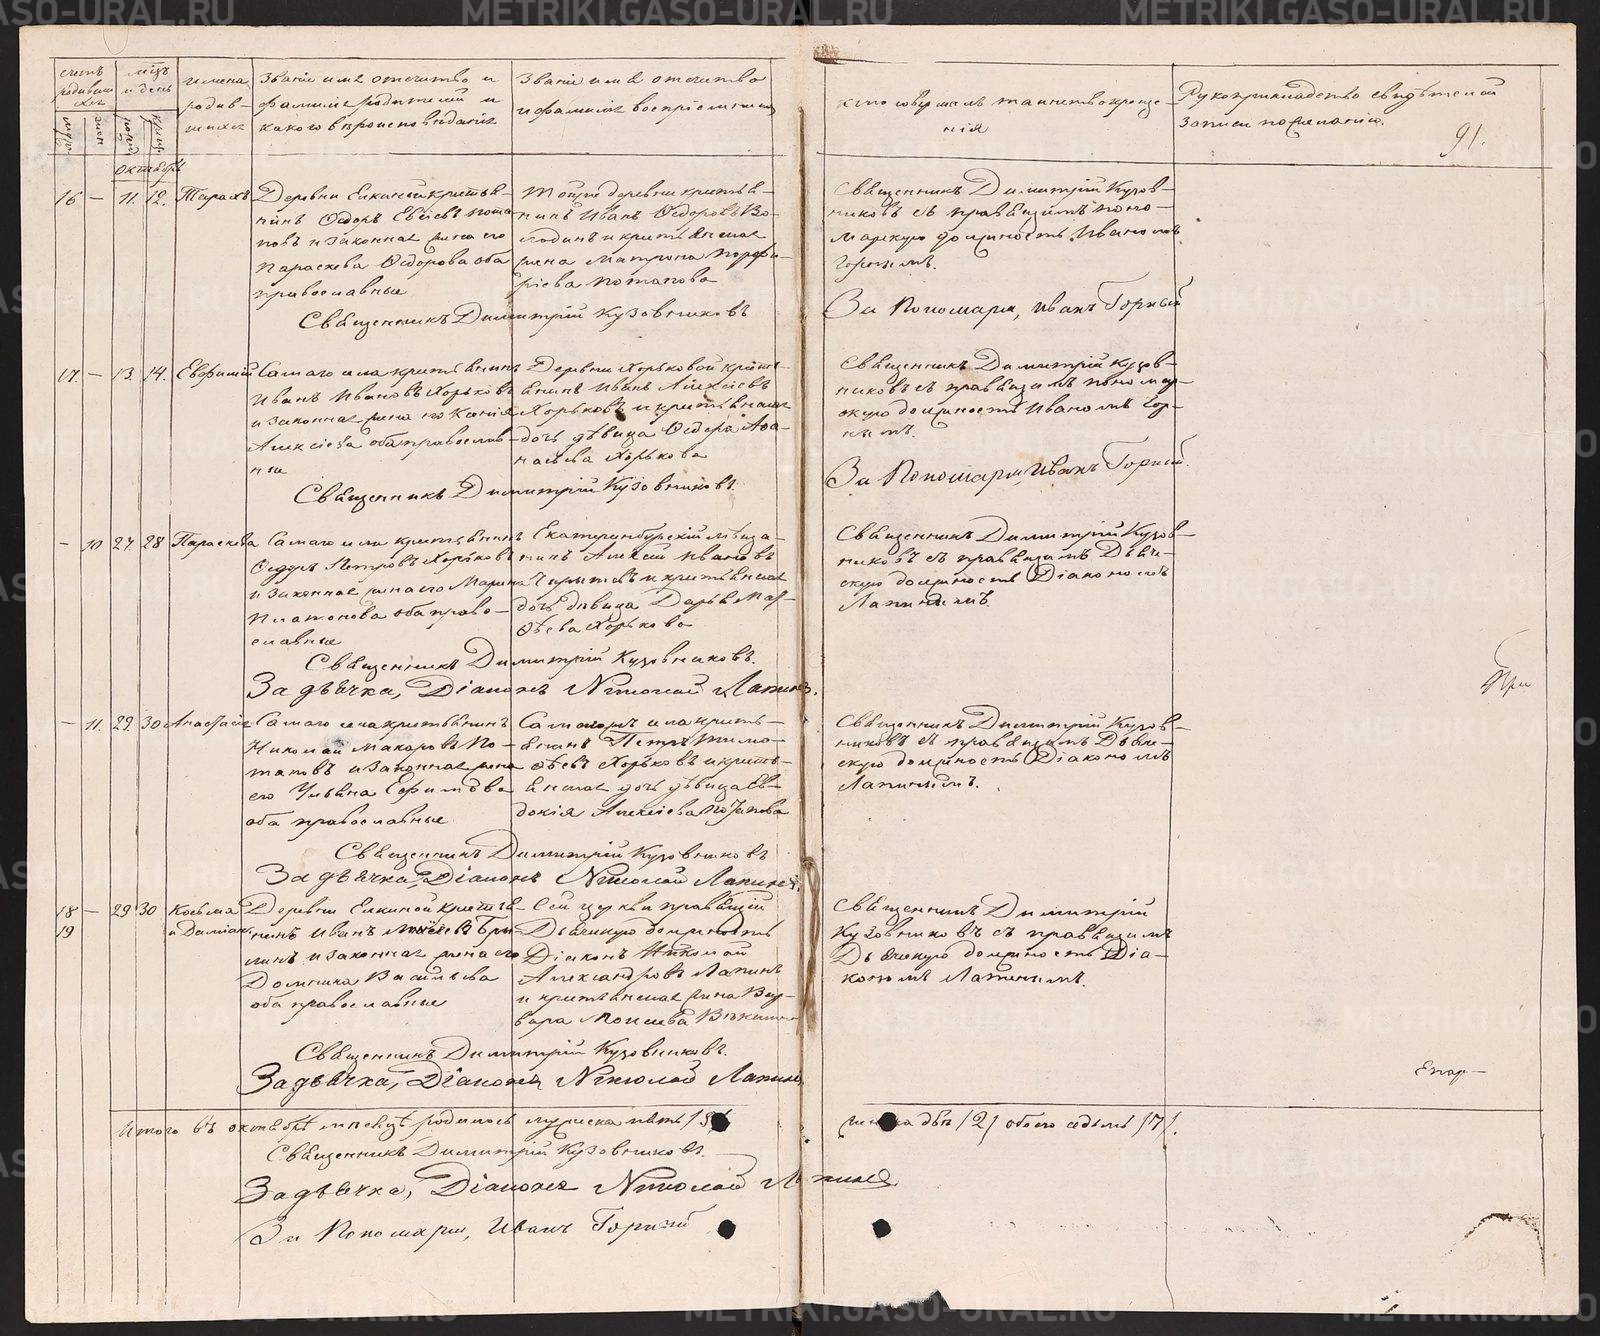 METRIKI.GASO-URAL.RU
счетъ родившихся
муж.
жен.
мѣсъ и день
рожд.
крещ.
имена родившихся
Званіе имя отчество и фамилія родителей и какого вѣроисповѣданія
Званіе имя отчество и фамилія воспріемниковъ
кто совершалъ таинство крещенія
Рукоприкладство свидѣтелей записи по желанію.
91.
октябрь
16 — 11. 12. Тарахъ
Деревни Елкиной крестья-
нинъ Ѳедоръ Евсіевъ Пота-
повъ и законная жена его
Параскева Ѳедорова оба
православные
Той же деревни крестья-
нинъ Иванъ Ѳедоровъ Во-
лодинъ и крестьянская
жена Матрона Порфи-
рієва Потапова
Священникъ Димитрій Кузов-
никовъ съ правящимъ поно-
марскую должность Иваномъ
Горнымъ.
Священникъ Димитрій Кузовниковъ
За Пономаря, Иванъ Горный
17. — 13. 14. Евфимій
Самаго села крестьянинъ
Иванъ Ивановъ Хорьковъ
и законная жена его Ксенія
Алексіева оба православ-
ные
Деревни Хорьковой кресть-
янинъ Иванъ Алексіевъ
Хорьковъ и крестьянская
дочь дѣвица Ѳедора Аѳа-
насьева Хорькова
Священникъ Димитрій Кузов-
никовъ съ правящимъ пономар-
скую должность Иваномъ Гор-
нымъ.
Священникъ Димитрій Кузовниковъ.
За Пономаря, Иванъ Горный.
— 10 27. 28 Параскева
Самаго села крестьянинъ
Ѳедоръ Петровъ Хорьковъ
и законная жена его Марина
Платонова оба право-
славные
Екатеринбургскій мѣща-
нинъ Алексій Ивановъ
и крестьянская
дочь дѣвица Дарья Мат-
ѳѣева Хорькова
Священникъ Димитрій Кузов-
никовъ съ правящимъ Дьяче-
скую должность Діакономъ
Лапинымъ.
Священникъ Димитрій Кузовниковъ.
За дьячка, Діаконъ Николай Лапинъ.
При
— 11. 29. 30 Анастасія
Самаго села крестьянинъ
Николай Макаровъ По-
таповъ и законная жена
его Ульяна Ефимова
оба православные
Самаго села кресть-
янинъ Петръ Тимо-
ѳѣевъ Хорьковъ и кресть-
янская дочь дѣвица Ев-
докія Алексіева Потапова
Священникъ Димитрій Кузов-
никовъ съ правящимъ Дьяче-
скую должность Діакономъ
Лапинымъ.
Священникъ Димитрій Кузовниковъ
За дьячка, Діаконъ Николай Лапинъ.
18 — 29 30 Косьма
19 и Даміанъ
Деревни Елкиной крестья-
нинъ Иванъ
и законная жена его
Домника Васильева
оба православные
Сей церкви правящій
Дьяческую должность
Діаконъ Николай
Александровъ Лапинъ
и крестьянская жена Вар-
вара Моисеева
Священникъ Димитрій
Кузовниковъ съ правящимъ
Дьяческую должность Діа-
кономъ Лапинымъ.
Священникъ Димитрій Кузовниковъ.
За дьячка, Діаконъ Николай Лапинъ
Епар-
Итого въ октябрѣ мѣсяцѣ родилось мужеска пять /5/ женска двѣ /2/ обоего седьмь /7/.
Священникъ Димитрій Кузовниковъ.
За дьячка, Діаконъ Николай Лапинъ
За Пономаря, Иванъ Горный